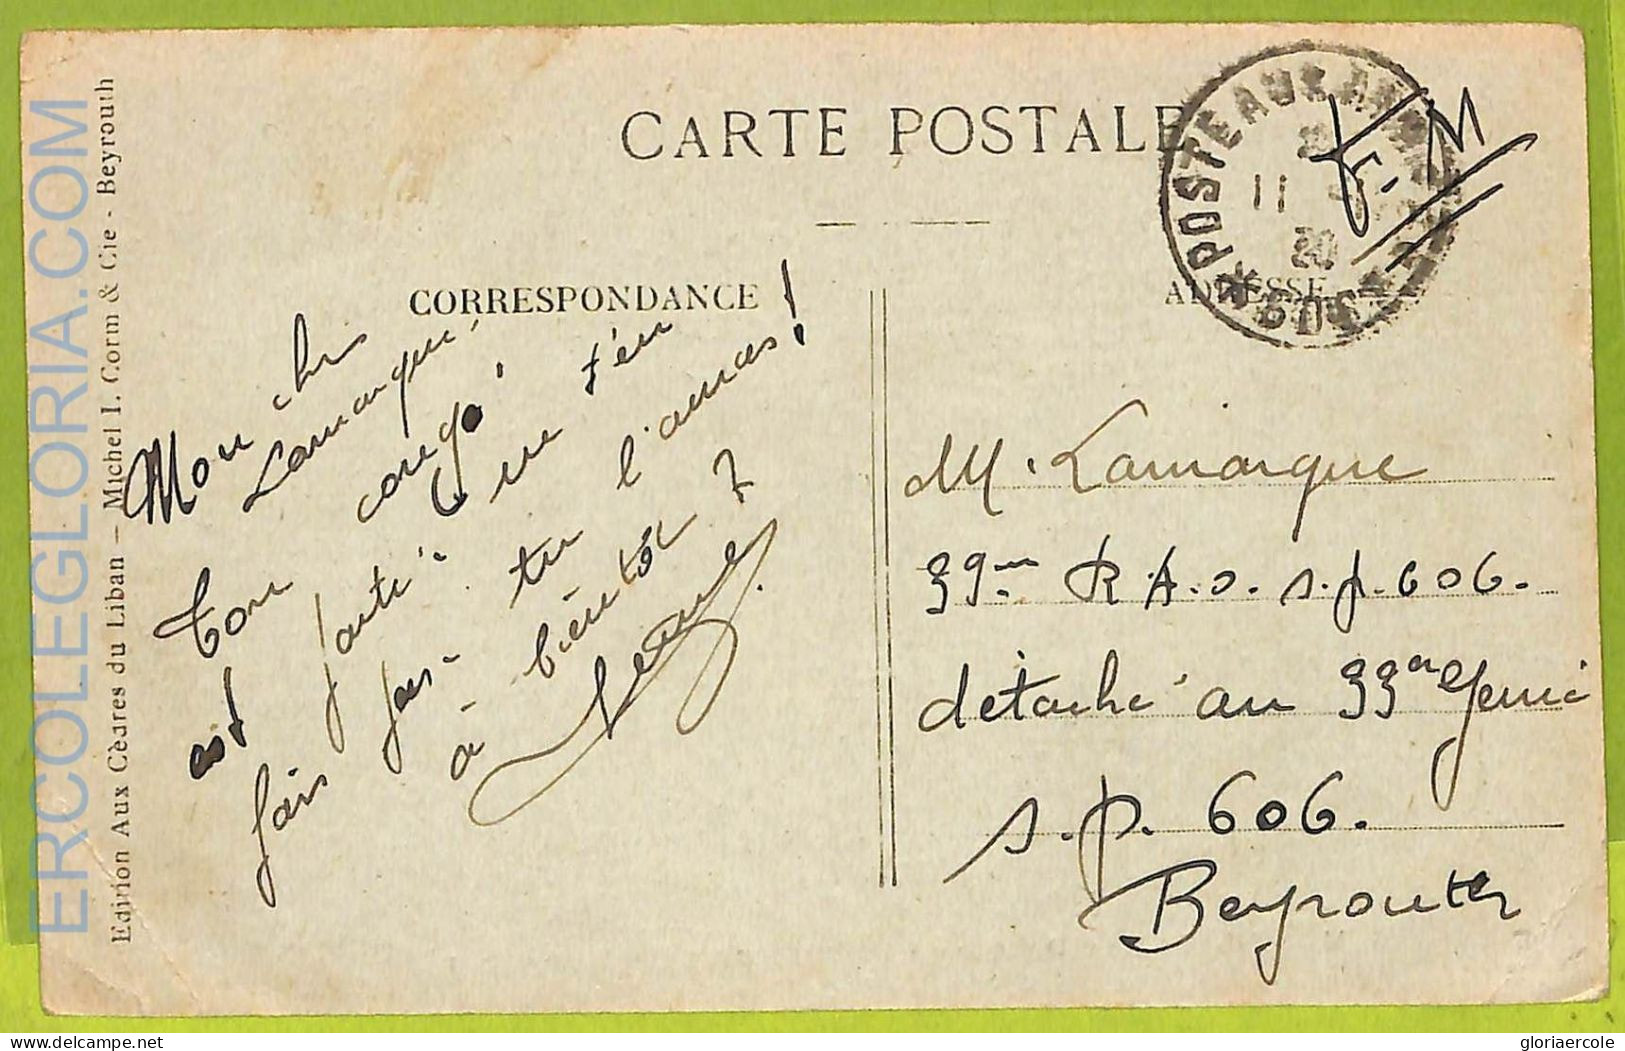 CARTE POSTALE
F.M
POSTE AUX ARMEES
11
20
*608*
CORRESPONDANCE
ADRESSE
Mon cher
Lamarque,
Ton congé
est parti. Ne t'en
fais pas. tu l'auras!
à bientôt?
M. Lamarque
39me R.A.S. s.p. 606.
détaché au 33me Génie
s.p. 606.
Beyrouth
Edition Aux Cèdres du Liban – Michel I. Corm & Cie - Beyrouth
ERCOLEGLORIA.COM
gloriaercole